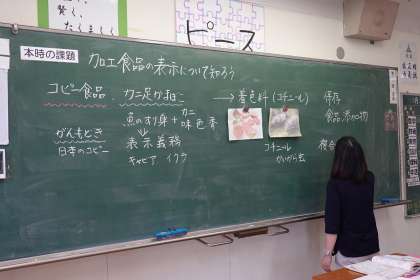 賢く、
たくましく
ピース
本時の課題
加工食品の表示について知ろう
コピー食品
カニ足かまぼこ
→着色料(コチニール)
保存
魚のすり身+カニ味色香
食品添加物
がんもどき
日本のコピー
表示義務
キャビア イクラ
コチニール
かいがら虫
複合